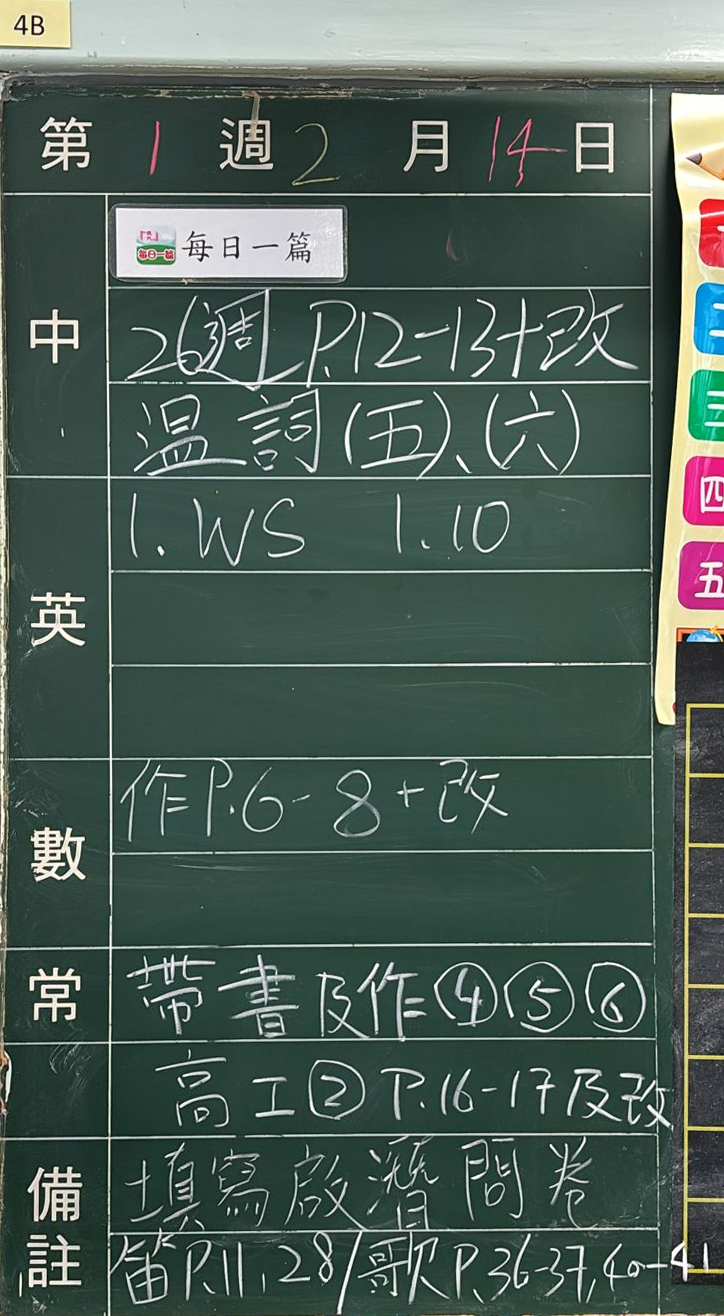 4B
第 1 週 2 月 14 日
中
每日一篇 每日一篇
26週 P.12-13+改
温詞(五)、(六)
英
1. WS 1.10
數
作P.6-8+改
常
帶書及作④⑤⑥
高工② P.16-17及改
備註
填寫啟潛問卷
笛P.11,28/歌P.36-37,40-41
二
三
四
五